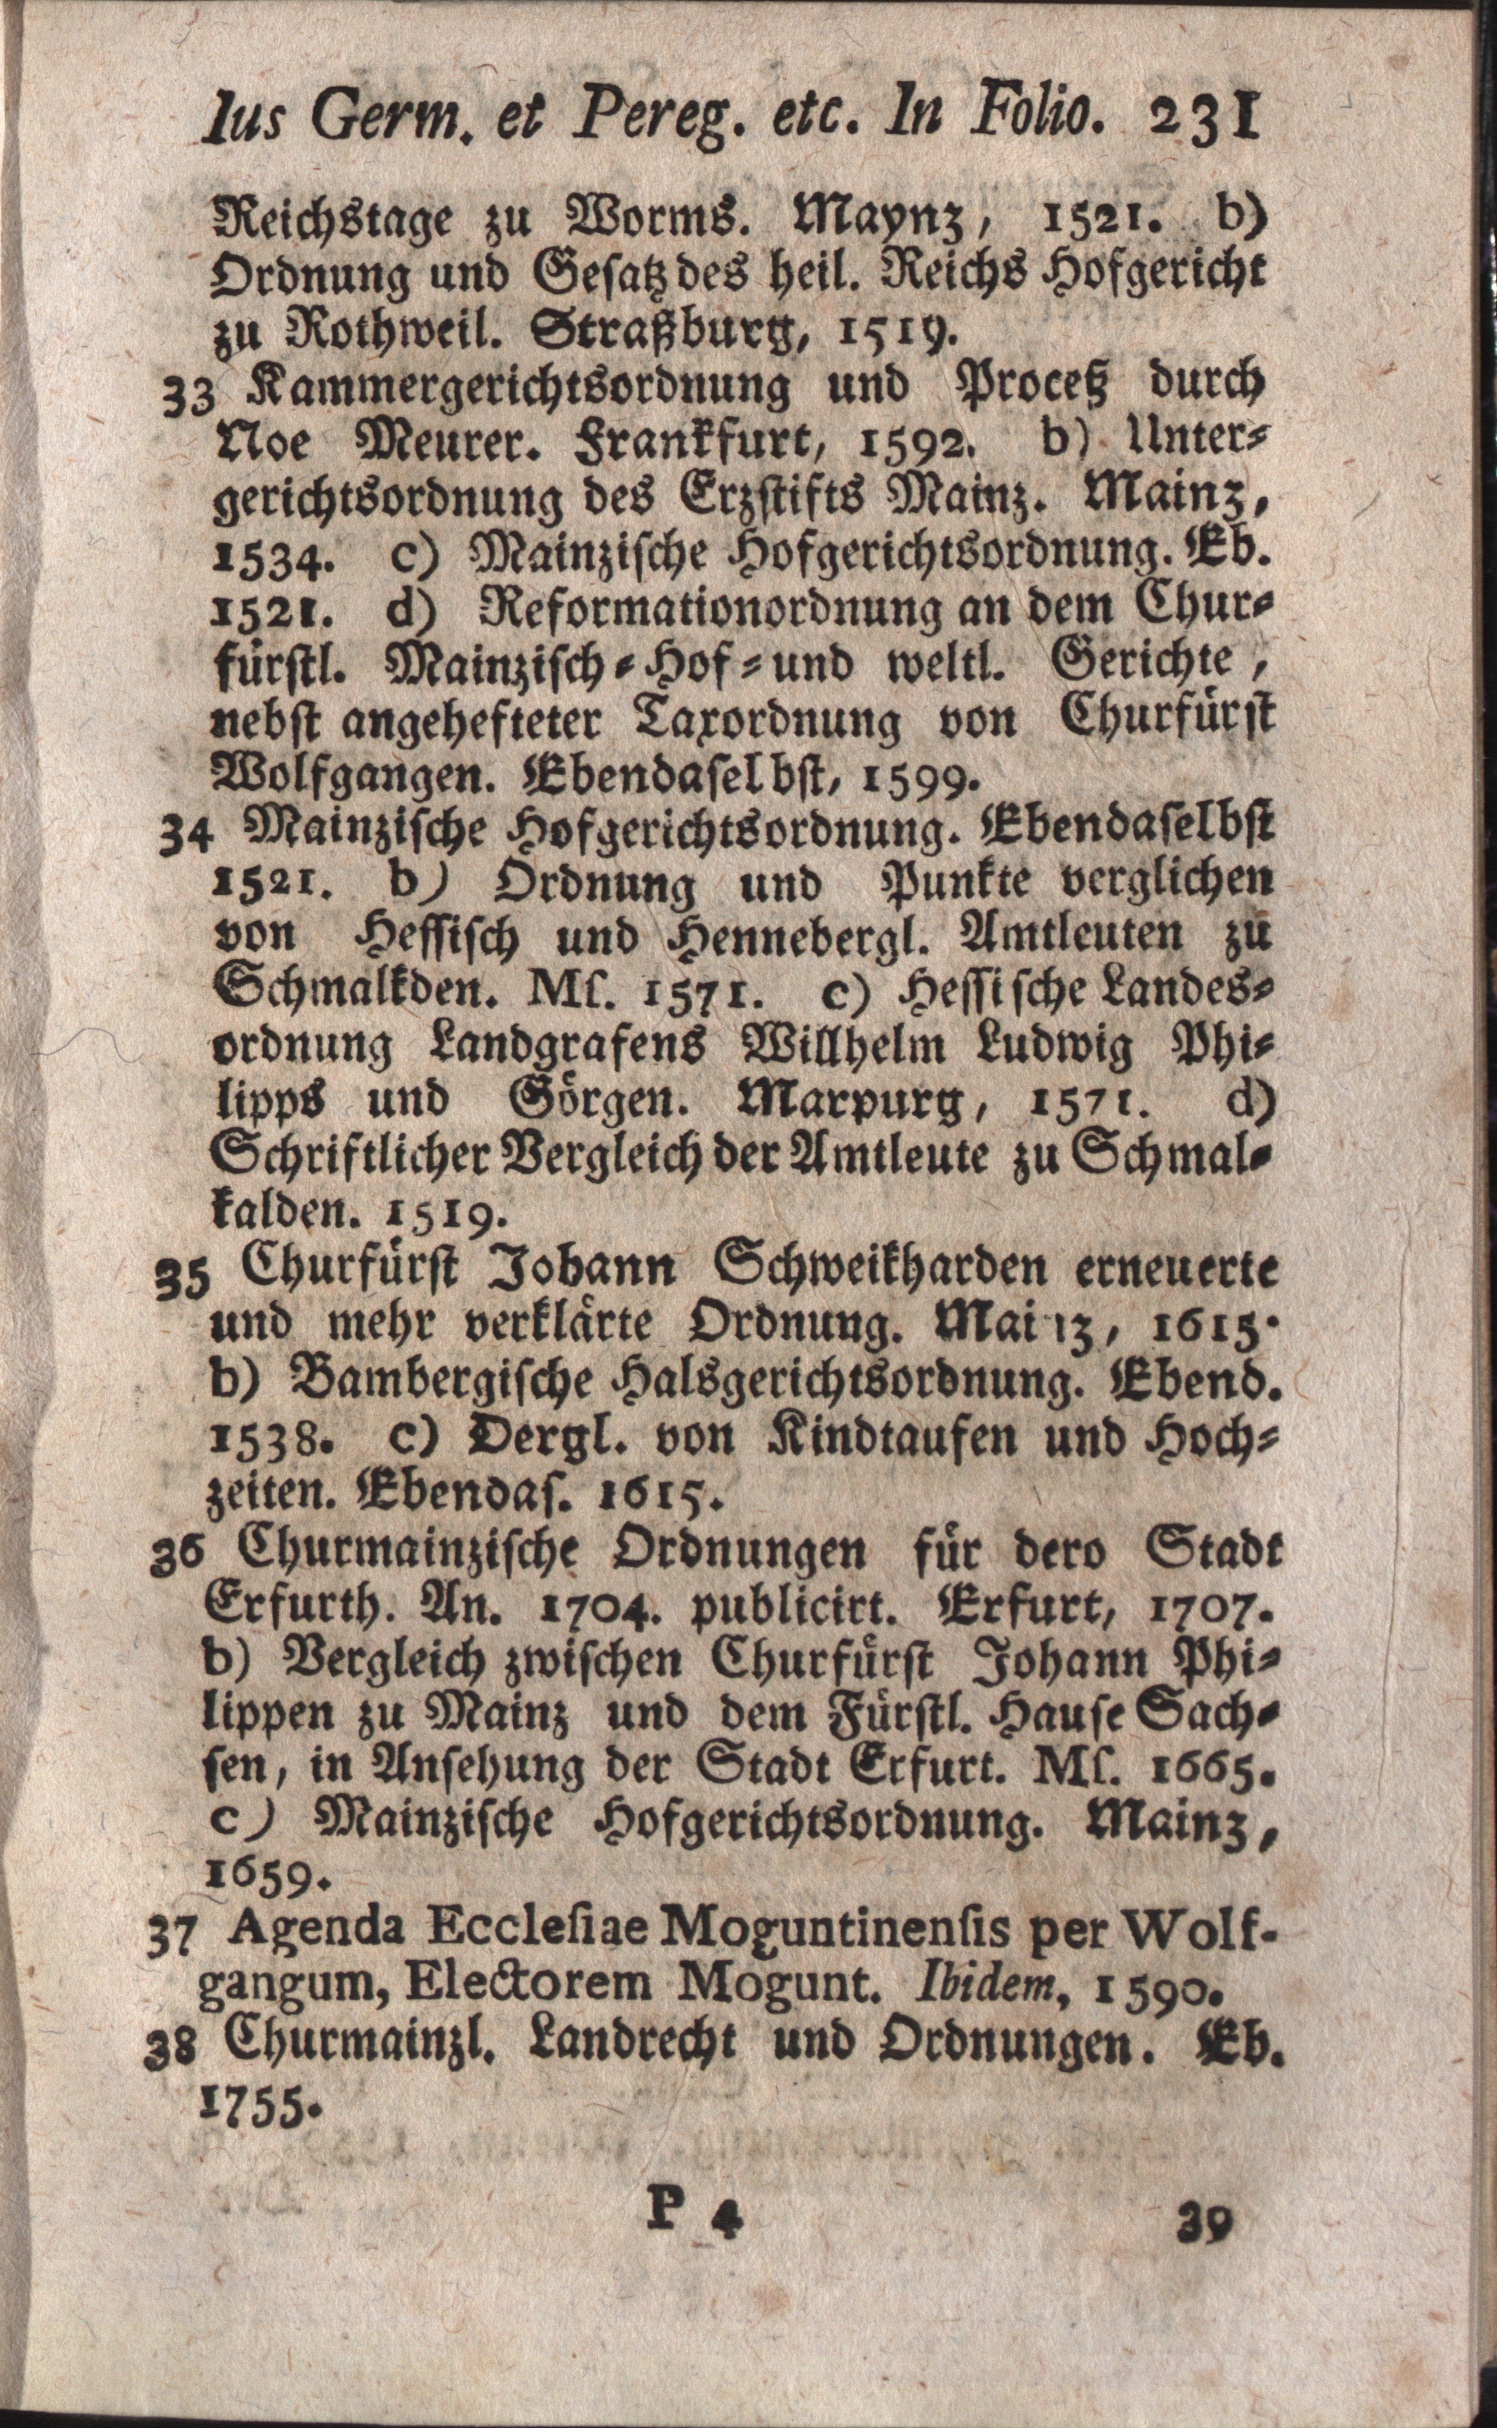 Ius Germ. et Pereg. etc. In Folio. 231
Reichstage zu Worms. Maynz, 1521. b)
Ordnung und Gesatz des heil. Reichs Hofgericht
zu Rothweil. Straßburg, 1519.
33 Kammergerichtsordnung und Proceß durch
Noe Meurer. Frankfurt, 1592. b) Unter⸗
gerichtsordnung des Erzstifts Mainz. Mainz,
1534. c) Mainzische Hofgerichtsordnung. Eb.
1521. d) Reformationordnung an dem Chur⸗
fürstl. Mainzisch⸗Hof⸗und weltl. Gerichte,
nebst angehefteter Taxordnung von Churfürst
Wolfgangen. Ebendaselbst, 1599.
34 Mainzische Hofgerichtsordnung. Ebendaselbst
1521. b) Ordnung und Punkte verglichen
von Hessisch und Hennebergl. Amtleuten zu
Schmalkden. Mſ. 1571. c) Hessische Landes⸗
ordnung Landgrafens Willhelm Ludwig Phi⸗
lipps und Görgen. Marpurg, 1571. d)
Schriftlicher Vergleich der Amtleute zu Schmal⸗
kalden. 1519.
35 Churfürst Johann Schweikharden erneuerte
und mehr verklärte Ordnung. Mainz, 1615.
b) Bambergische Halsgerichtsordnung. Ebend.
1538. c) Dergl. von Kindtaufen und Hoch⸗
zeiten. Ebendas. 1615.
36 Churmainzische Ordnungen für dero Stadt
Erfurth. An. 1704. publicirt. Erfurt, 1707.
b) Vergleich zwischen Churfürst Johann Phi⸗
lippen zu Mainz und dem Fürstl. Hause Sach⸗
sen, in Ansehung der Stadt Erfurt. Mſ. 1665.
c) Mainzische Hofgerichtsordnung. Mainz,
1659.
37 Agenda Eccleſiae Moguntinenſis per Wolf-
gangum, Electorem Mogunt. Ibidem, 1590.
38 Churmainzl. Landrecht und Ordnungen. Eb.
1755.
P 4 39